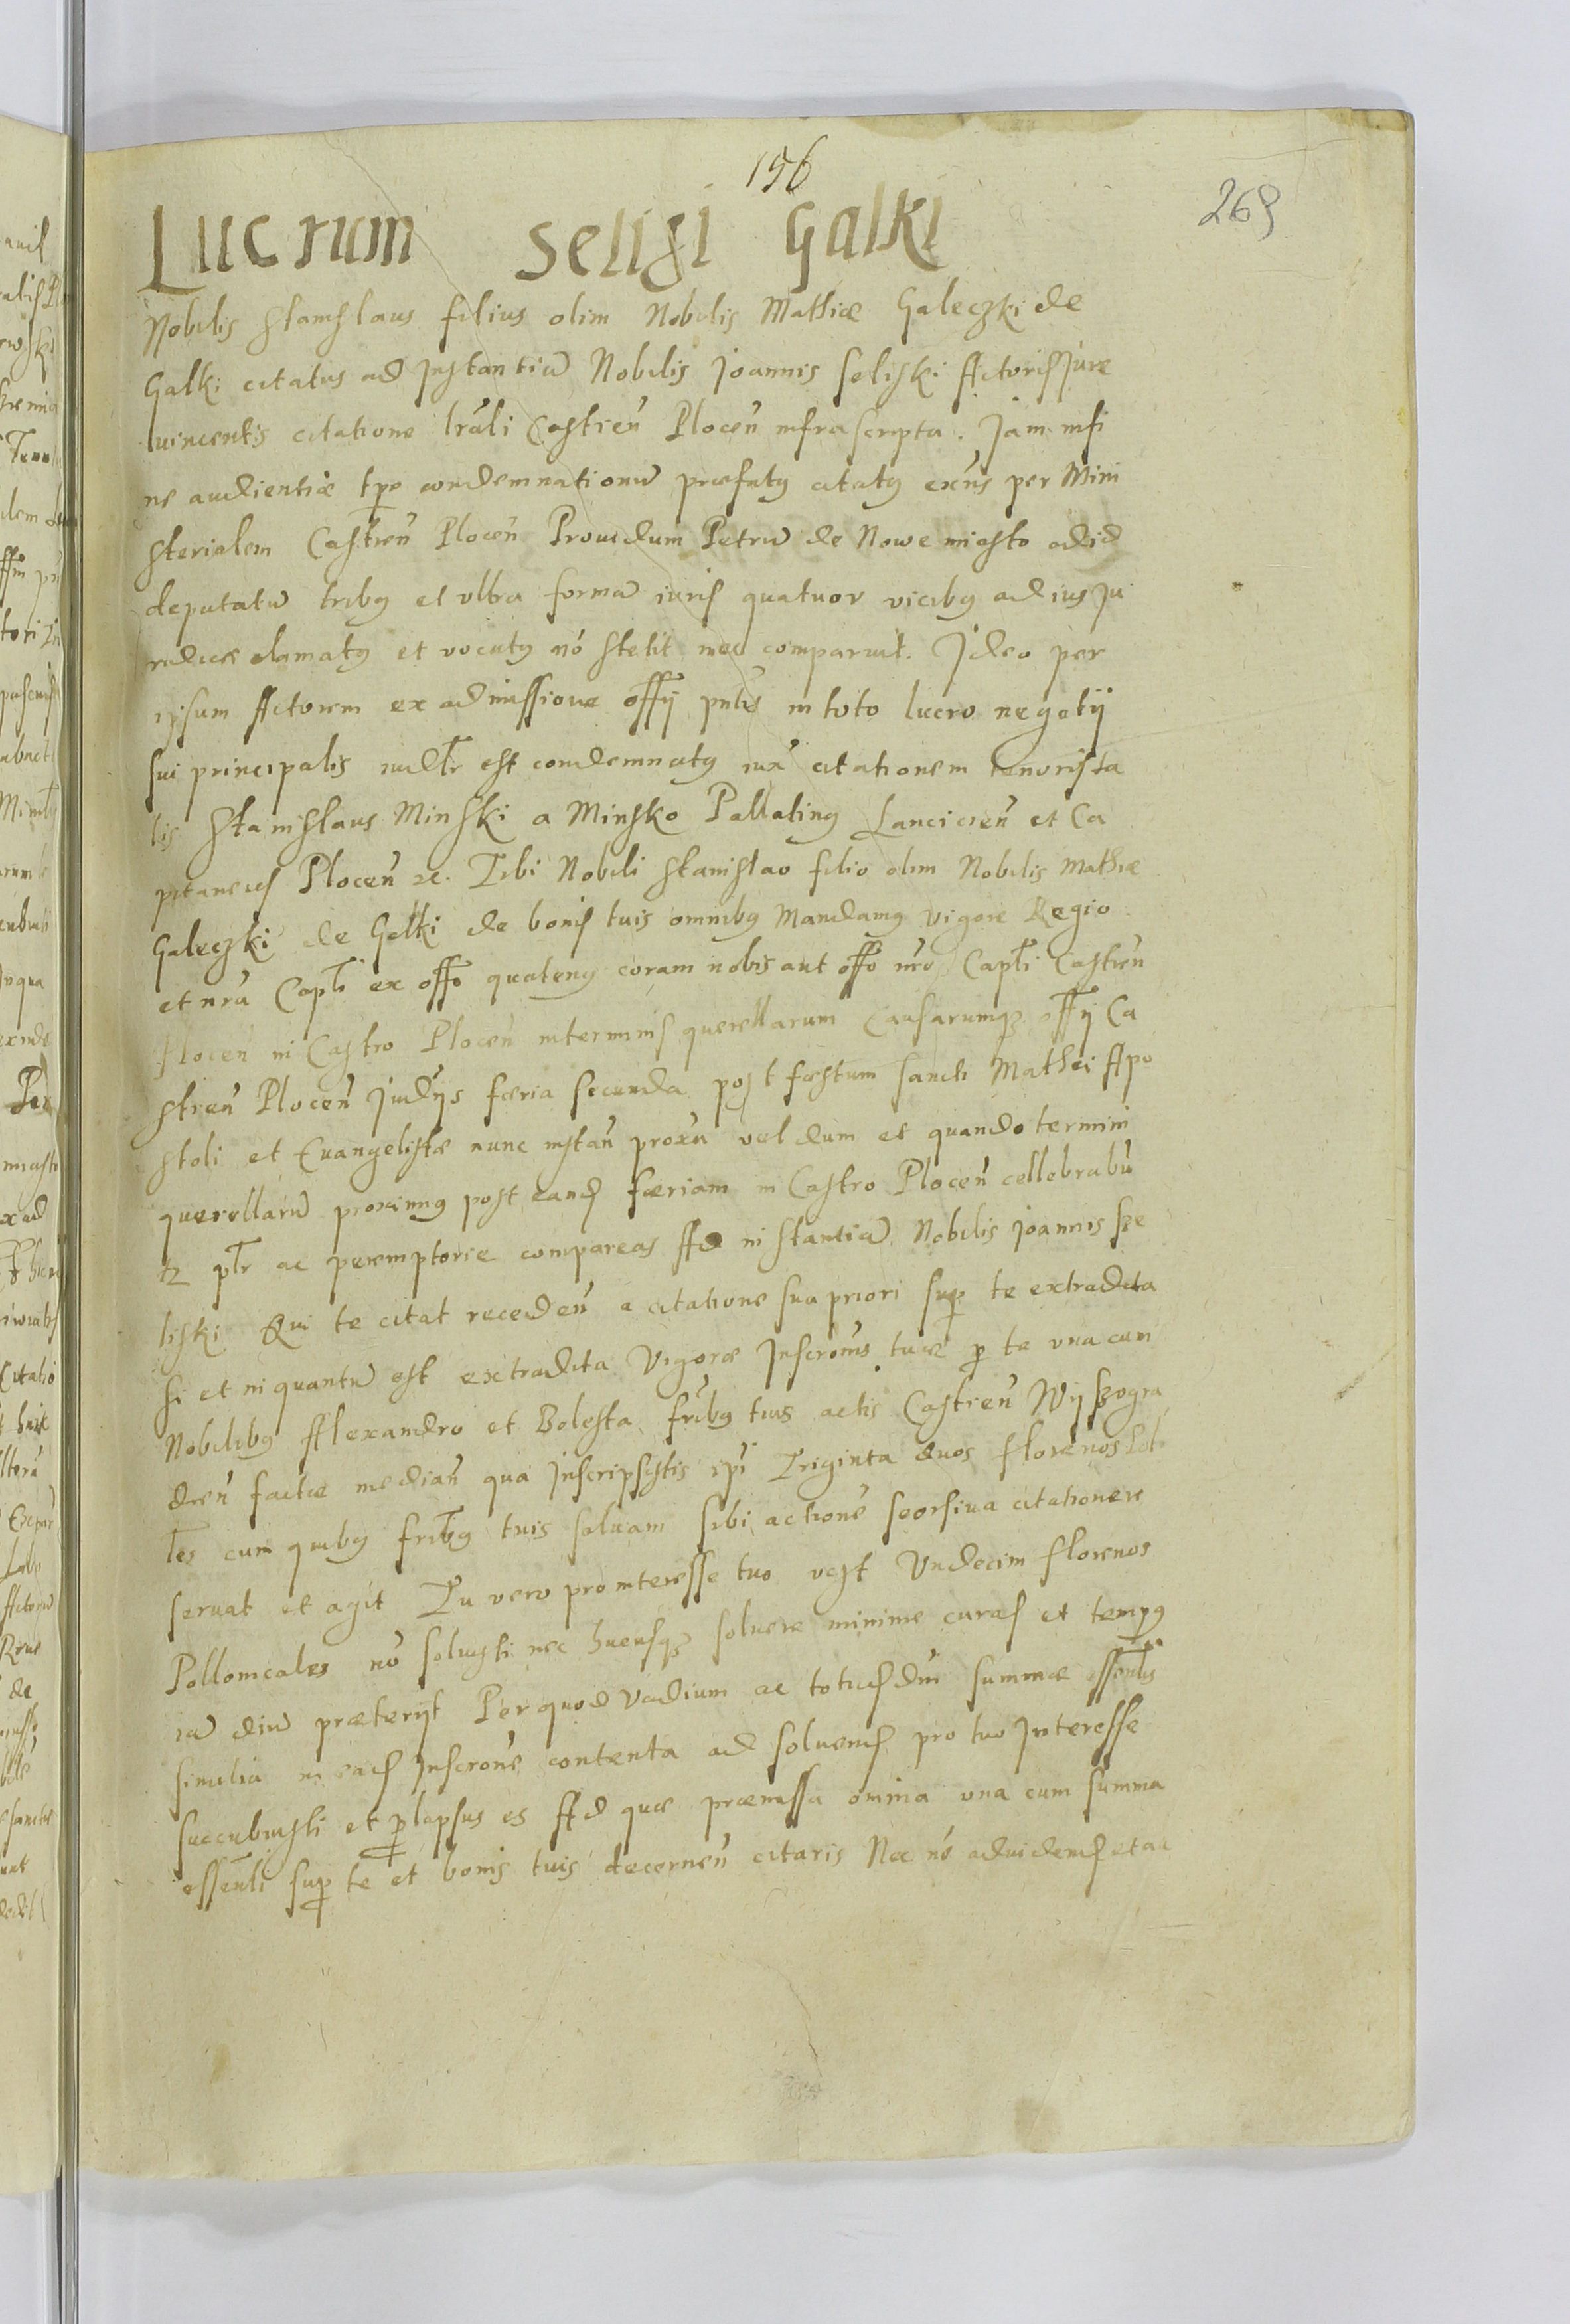 156
269
Lucrum Seliski Galki
Nobilis Stanislaus filius olim Nobilis Mathiæ Galeczki de
Galki citatus ad Instantiã Nobilis Joannis Seliski Actoris Jure
vincentis citatione lrãli Castreñ Ploceñ infrascripta. Jam in fi
ne audientiæ tpe condemnationũ præfatq citatq exñs per Mini
sterialem Castreñ Ploceñ Providum Petrũ de Nowe miasto ad id
deputatũ tribq et vltra formã iuris quatuor vicibq ad ius Ju
ridice clamatq et vocatq nõ stetit nec comparuit. Ideo per
ipsum Actorem ex admissione offij pntis in toto lucro negotij
sui principalis iudltr est condemnatq iuxã citationem tenoris ta
lis Stanislaus Minski a Minsko Pallatinq Lancicieñ et Ca
pitaneus Ploceñ &c. Tibi Nobili Stanislao filio olim Nobilis Mathiæ
Galeczki de Galki de bonis tuis omnibq Mandamq vigore Regio
et nrã Capli ex offo quatenq coram nobis aut offo nro Capli Castreñ
Ploceñ in Castro Ploceñ in terminis querellarum Causarumq offij Ca
streñ Ploceñ Judijs færia secunda post fæstum sancti Mathei Apo
stoli et Evangelistæ nunc instañ proxã vel dum et quando termini
querellarũ proximq post eand færiam in Castro Ploceñ cellebrabũ
tz pltr ac peremptorie compareas Ad instantiã Nobilis Joannis Sze
liski Qui te citat recedeñ a citatione sua priori sup te extradita
si et in quantũ est extradita Vigore Inscrõnis tuæ p te vna cum
Nobilibq Alexandro et Bolesta frĩbq tuis actis Castreñ Wyszogra
dreñ factæ mediañ qua Inscripsistis ipi Triginta duos florenos Pol
les cum quibq fribq tuis salvam sibi actionẽ seorsiva citatione re
servat et agit Tu vero pro interesse tuo vazt Vndecim florenos
Pollonicales nõ solvisti nec hucusq solvere minime curas et tempq
iã diũ præterijt Per quod Vadium ac totũ dñi summæ essentlis
similia in ead Inscrõne contenta ad solvend pro tuo Interesse
succubuisti et plapsus es Ad quæ præmissa omnia vna cum summa
essenli sup te et bonis tuis decerneñ citaris Nec nõ ad videnđ et au